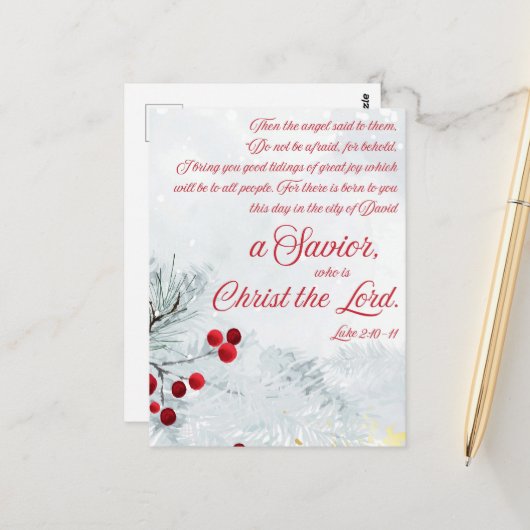 Then the angel said to them,
"Do not be afraid, for behold,
I bring you good tidings of great joy which
will be to all people. For there is born to you
this day in the city of David
a Savior,
who is
Christ the Lord.
Luke 2:10-11
zle